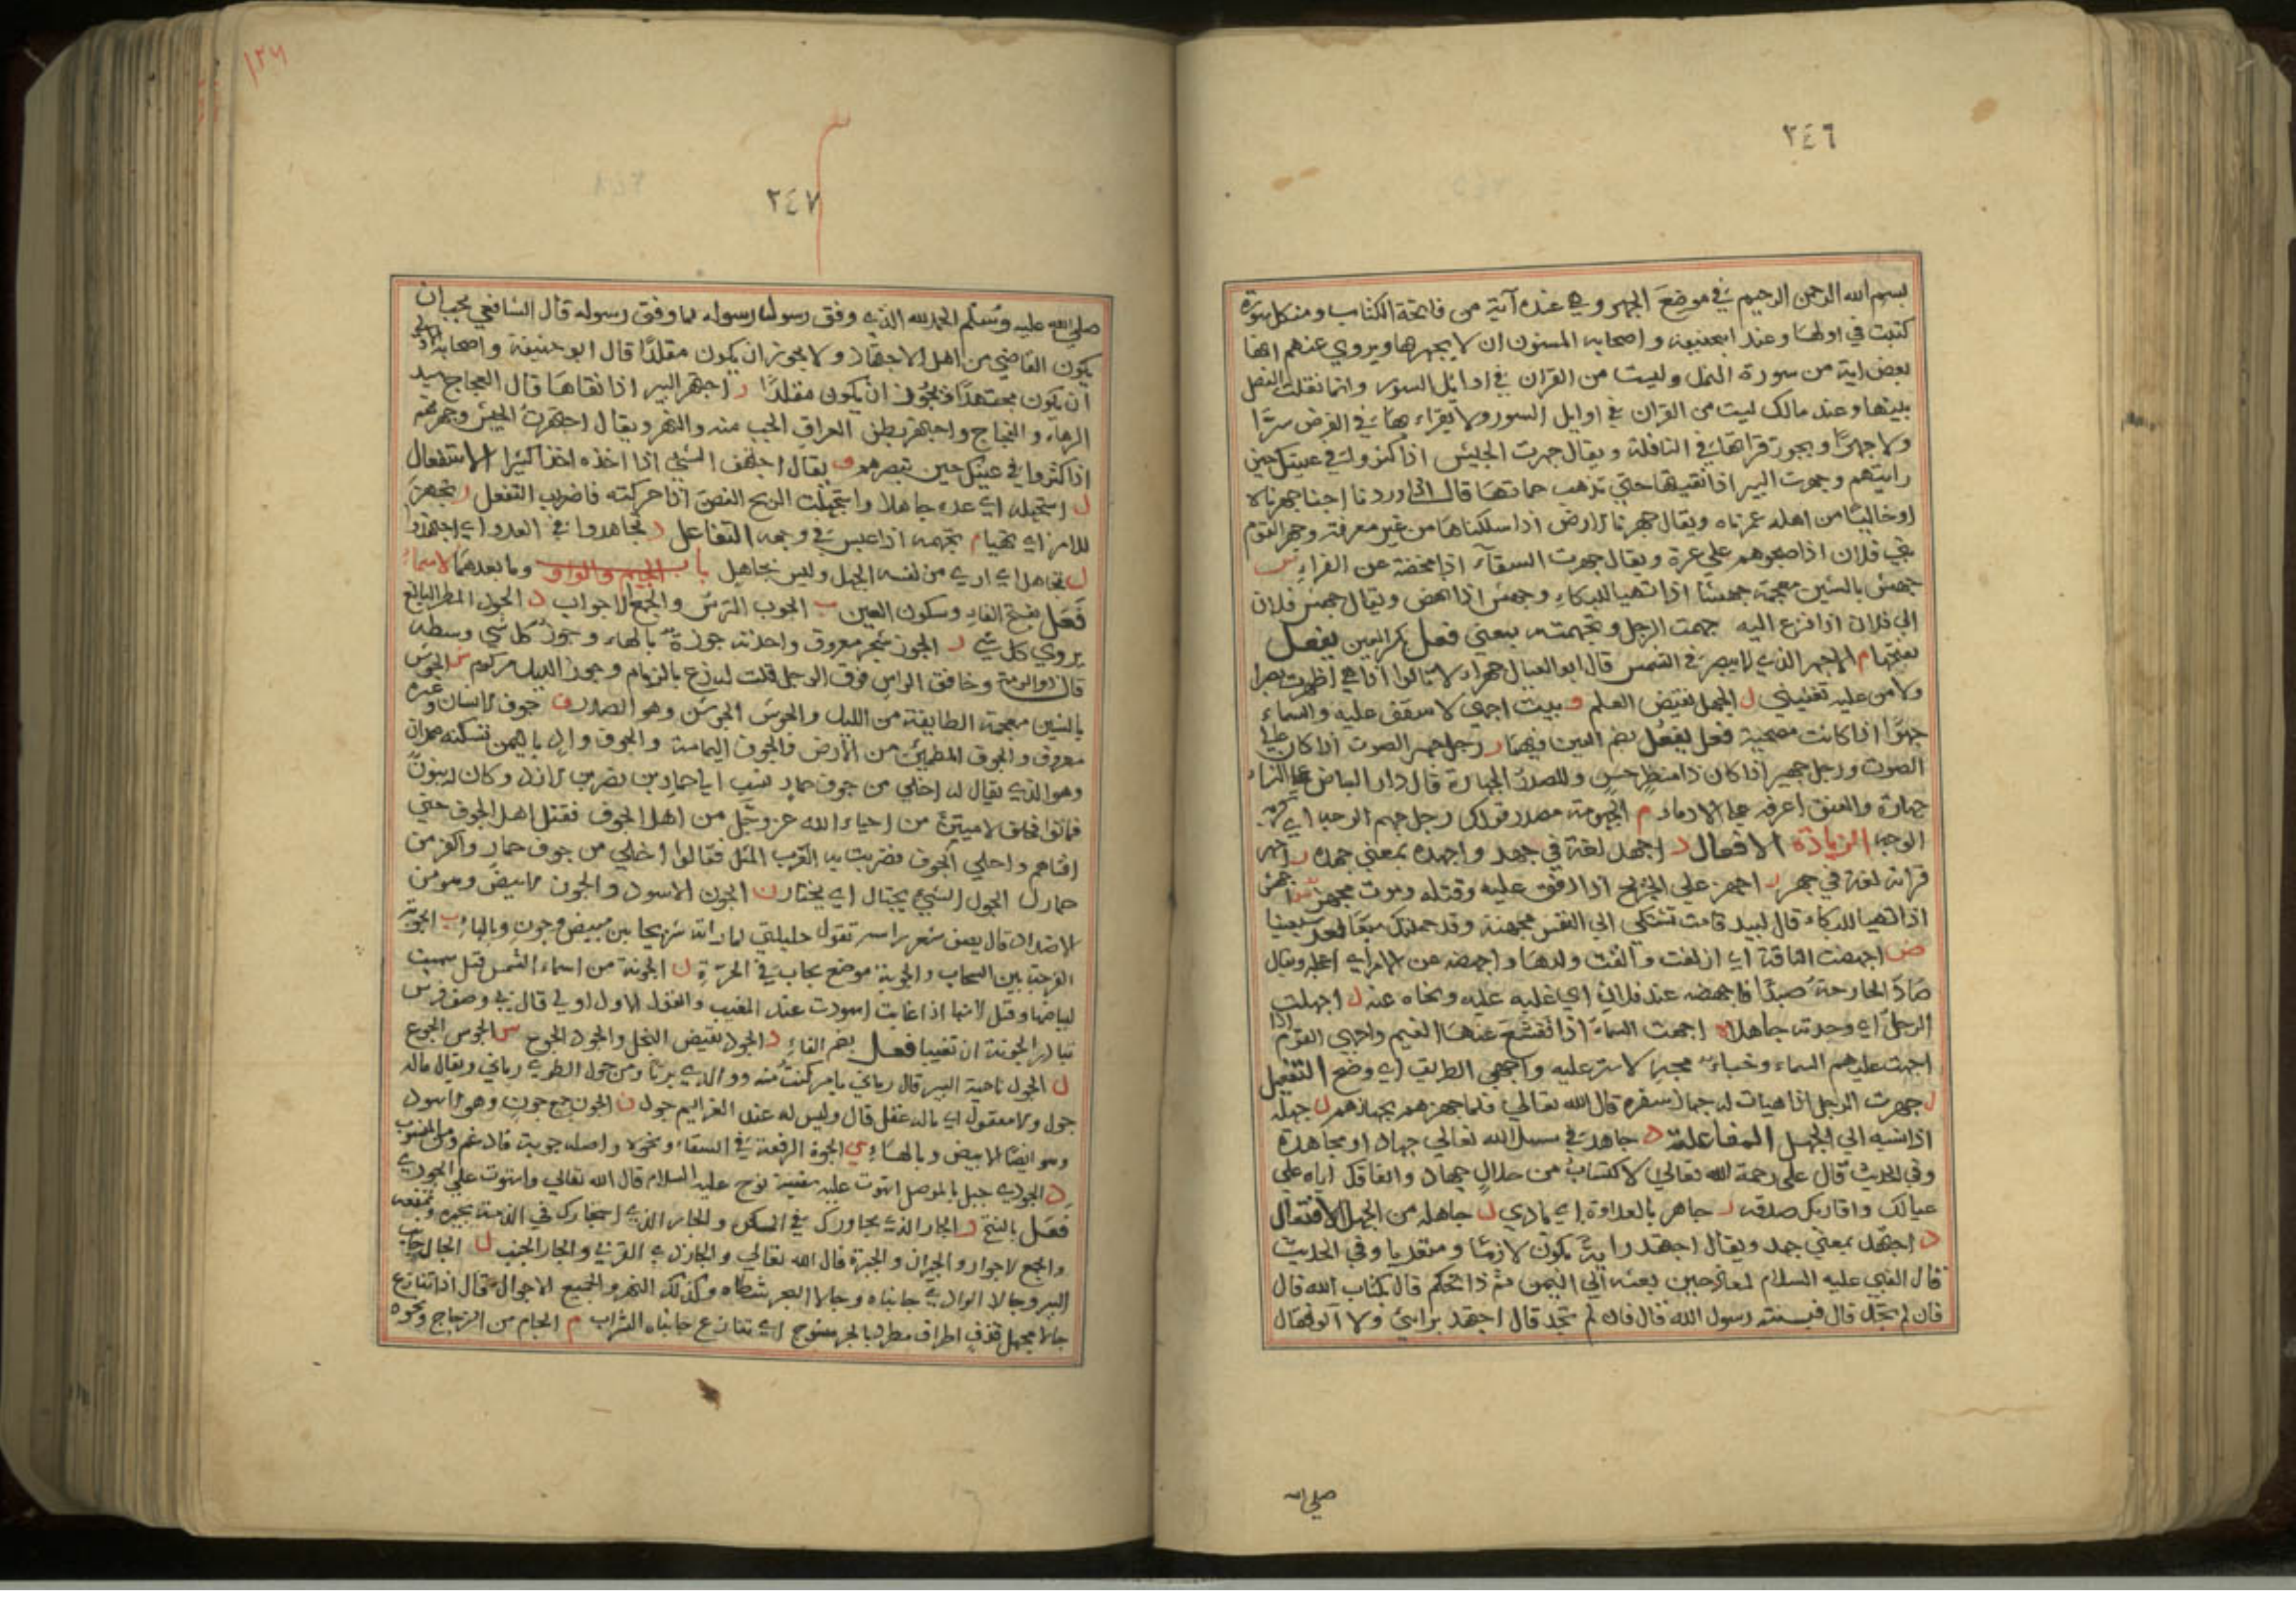 ٢٤٦
بسم الله الرحمن الرحيم في موضع الجهر وهي عنده آية من فاتحة الكتاب ومن كل سورة
كتبت في اولها وعند ابي حنيفة واصحابه المسنون ان لا يجهر بها ويروي عنهم انها
بعض اية من سورة النمل وليست من القران في اوائل السور وانما نقلت للفصل
بينها وعند مالك ليست من القران في اوايل السور ولا يقراء بها في الفرض سرًا
ولا جهرًا ويجوز قراتها في النافلة ويقال جهرت الجيش اذا كثروا في عينك حين
رايتهم وجهرت البير اذا نقيتها حتي تذهب حماتها قال اذا وردنا اجنا جهرناه
او خاليًا من اهله عمرناه ويقال جهرنا الارض اذا سلكناها من غير معرفة وجهر القوم
بني فلان اذا صبحوهم علي غرة ويقال جهرت السقآء اذا مخضته عن الفراء ش
جهش بالشين معجمة جهشًا اذا تهيا للبكاء وجهش اذا نهض ويقال جهش فلان
الي فلان اذا فزع اليه جهمت الرجل وتجهمته بمعني فعل بكسر العين يفعل
بفتحها م الاجهر الذي لا يبصر في الشمس قال ابو العيال جهراء لا تالوا اذا هي اظهرت بصرا
ولا من عيلة تغنيني ل الجهل نقيض العلم و بيت اجهي لا سقف عليه والسماء
جهوًا اذا كانت مصحية فعل يفعل بضم العين فيهما ر رجل جهر الصوت اذا كان عالي
الصوت ورجل جهير اذا كان ذا منظر حسن والمصدر الجهارة قال دار البياض علي النساء
جهارة والعتق اعرفه علي الادماء م الجهومة مصدر قولك رجل جهم الوجه اي كريه
الوجه الزيادة الافعال د اجهد لغة في جهد واجهده بمعني جهده ر اجهر
قراته لغة في جهر ز اجهز علي الجريح اذا ذفف عليه وقتله وموت مجهز ش اجهش
اذا تهيا للبكاء قال لبيد قامت تشكي الي النفس مجهشة وقد حملتك سبعًا بعد سبعينا
ض اجهضت الناقة اي ازلقت والقت ولدها واجهضه عن الامر اي اعجله ويقال
صاد الجارحة صيدًا فاجهضه عنه فلان اي غلبه عليه ونحاه عنه ل اجهلت
الرجل اي وجدته جاهلا و اجهت السماء اذا تقشع عنها الغيم واجهي القوم اذا
اجهت عليهم السماء وخباء مجهي لا ستر عليه واجهي الطريق اي وضح التفعيل
ز جهزت الرجل اذا هيات له جهاز سفره قال الله تعالي فلما جهزهم بجهازهم ل جهله
اذا نسبه الي الجهل المفاعلة د جاهد في سبيل الله تعالي جهادًا ومجاهدة
وفي الحديث قال علي رحمة الله تعالي الاكتساب من حلال جهاد وانفاقك اياه علي
عيالك واقاربك صدقة ر جاهر بالعداوة اي بادي ل جاهله من الجهل الافتعال
د اجتهد بمعني جهد ويقال اجتهد رايه يكون لازمًا ومتعديا وفي الحديث
قال النبي عليه السلام لمعاذ حين بعثه الي اليمن بم ذا تحكم قال بكتاب الله قال
فان لم تجد قال فبسنة رسول الله قال فان لم تجد قال اجتهد برايي ولا آلو فقال
صلي الله
١٢٦
٢٤٧
صلي الله عليه وسلم الحمد لله الذي وفق رسول رسوله لما وفق رسوله قال الشافعي يجب ان
يكون القاضي من اهل الاجتهاد ولا يجوز ان يكون مقلدًا قال ابو حنيفة واصحابه الاولي
ان يكون مجتهدًا فيجوز ان يكون مقلدًا ر اجتهر البير اذا نقاها قال العجاج
الرهاء والفجاج واجتهر بطن العراق الجب منه والنهر ويقال اجتهرت الجيش وجهرتهم
اذا كثروا في عينك حين تبصرهم ف يقال اجتهف الشي اذا اخذه اخذا كثيرا الاستفعال
ل استجهله اي عده جاهلا واستجهلت الريح الغصن اذا حركته فاضرب التفعل ز تجهز
للامر اي تهيا م تجهمه اذا عبس في وجهه التفاعل د تجاهدوا في العدو اي اجتهدوا
ل تجاهل اي اري من نفسه الجهل وليس بجاهل باب الجيم والواو وما بعدهما الاسماء
فَعْل بفتح الفاء وسكون العين ب الجوب الترس والجمع الاجواب د الجود المطر البالغ
يروي كل شي ز الجوز شجر معروف واحدته جوزة بالهاء وجوز كل شي وسطه
قال ذو الرمة وخافق الراس فوق الرحل قلت له زع بالزمام وجوز الليل مركوم ش الجوش
بالشين معجمة الطايفة من الليل والجوش الجوشن وهو الصدر ف جوف الانسان وغيره
معروف والجوف المطمئن من الارض فالجوف اليمامة والجوف واد باليمن تسكنه همدان
وهو الذي يقال له اخلي من جوف حمار نسب الي حمار بن نصر بن الازد وكان له بنون
فماتوا فحلف لا ميتن من احياه الله عز وجل من اهل الجوف فقتل اهل الجوف حتي
افناهم واخلي الجوف فضربت به العرب المثل فقالوا اخلي من جوف حمار واكفر من
حمار ل الجول الشي يجتال اي يختار ن الجون الاسود والجون الابيض وهو من
الاضداد قال يصف شعر راسه تقول حليلتي لما راته شريجا بين مبيض وجون وبالهاء ب الجوبة
الفرجة بين السحاب والجوبة موضع يجاب في الحرة ن الجونة من اسماء الشمس قيل سميت
لبياضها وقيل لانها اذا غابت اسودت عند المغيب والقول الاول اولي قال في وصف فرس
تبادر الجونة ان تغيبا فعل بضم الفاء د الجود نقيض البخل والجود الجوع س الجوس الجوع
ل الجول ناحية البير قال رماني بامر كنت منه ووالدي بريًا ومن جول الطوي رماني ويقال ماله
جول ولا معقول اي ماله عقل قال وليس له عند العزايم جول ن الجون جمع جون وهو الاسود
وهو ايضًا الابيض وبالهاء ي الجوة الرقعة في السقاء ونحوه واصله جوية فادغم ومن المنسوب
د الجودي جبل بالموصل استوت عليه سفينة نوح عليه السلام قال الله تعالي واستوت علي الجودي
فعل بالفتح ر الجار الذي يجاورك في السكن والجار الذي استجارك في الذمة تجيره وتمنعه
والجمع الاجوار والجيران والجيرة قال الله تعالي والجار ذي القربي والجار الجنب ل الجال جانب
البير وجالا الوادي جانباه وجالا البحر شطاه وكذلك النهر والجميع الاجوال قال اذا تنازع
جالا مجهل قذف اطراف مطرد بالحر منسوج اي تنازع جانباه السراب م الجام من الزجاج ونحوه